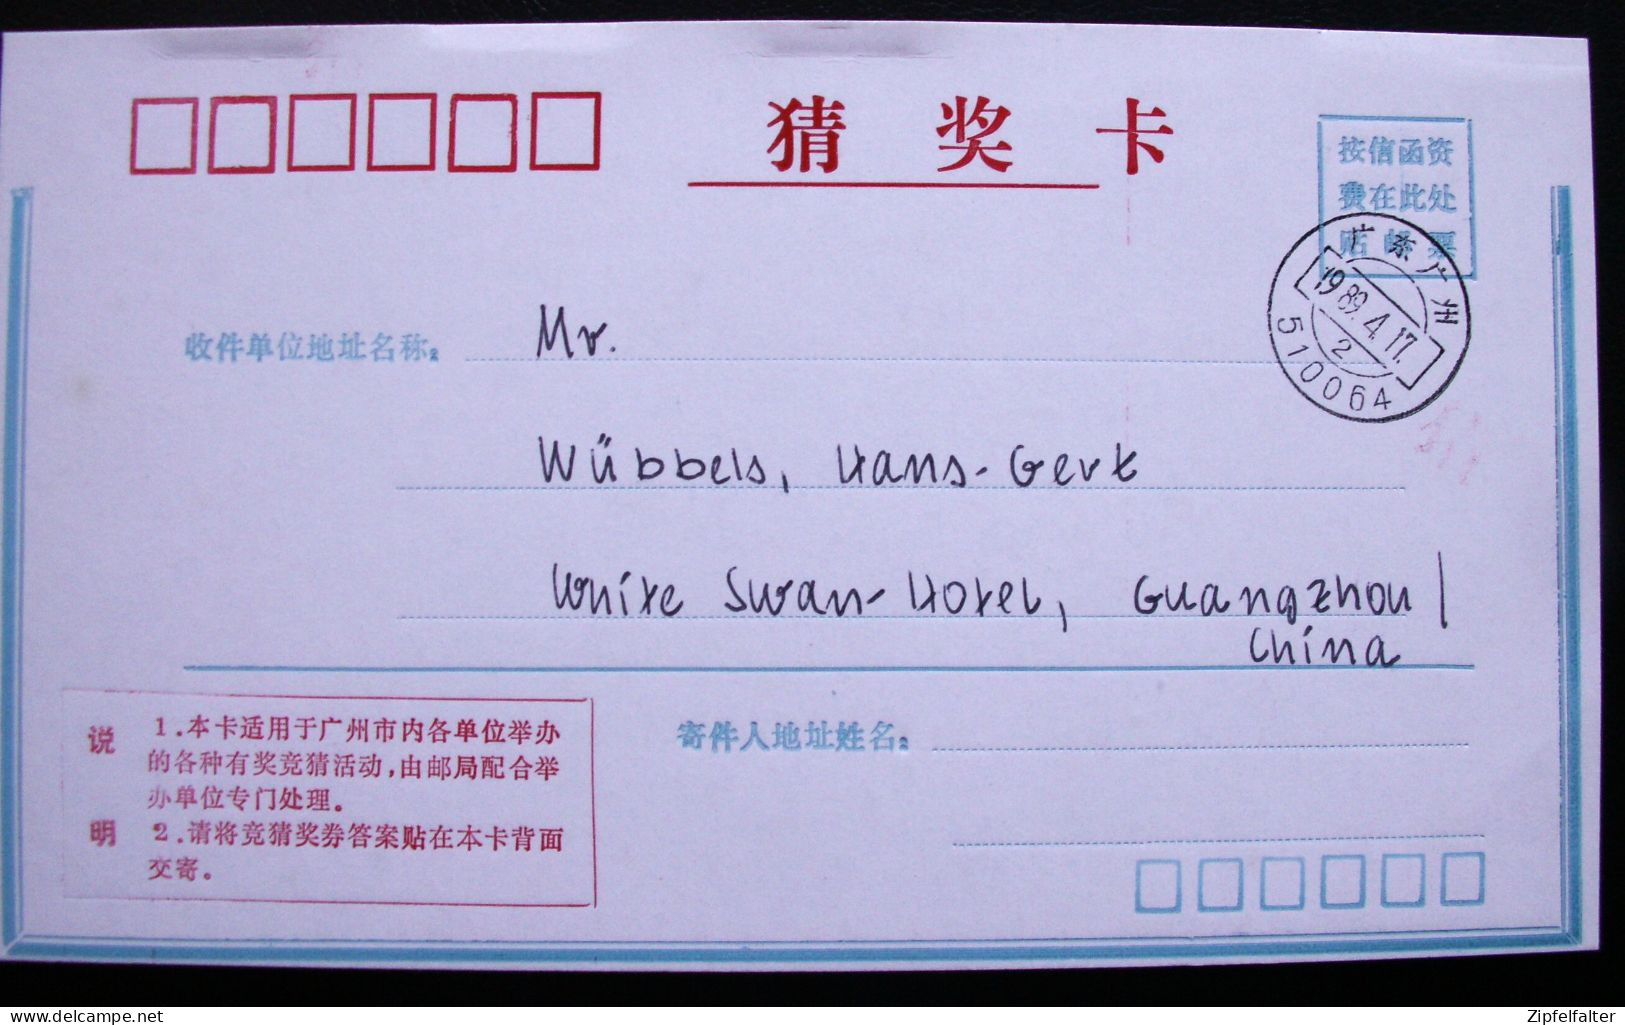 猜奖卡
按信函资
费在此处
贴邮票
广东广州
1989.4.17.
2
510064
收件单位地址名称:
Mr.
Wübbels, Hans-Gert
White Swan-Hotel, Guangzhou |
China
说明
1.本卡适用于广州市内各单位举办
的各种有奖竞猜活动,由邮局配合举
办单位专门处理。
2.请将竞猜奖券答案贴在本卡背面
交寄。
寄件人地址姓名:
www.delcampe.net
Zipfelfalter